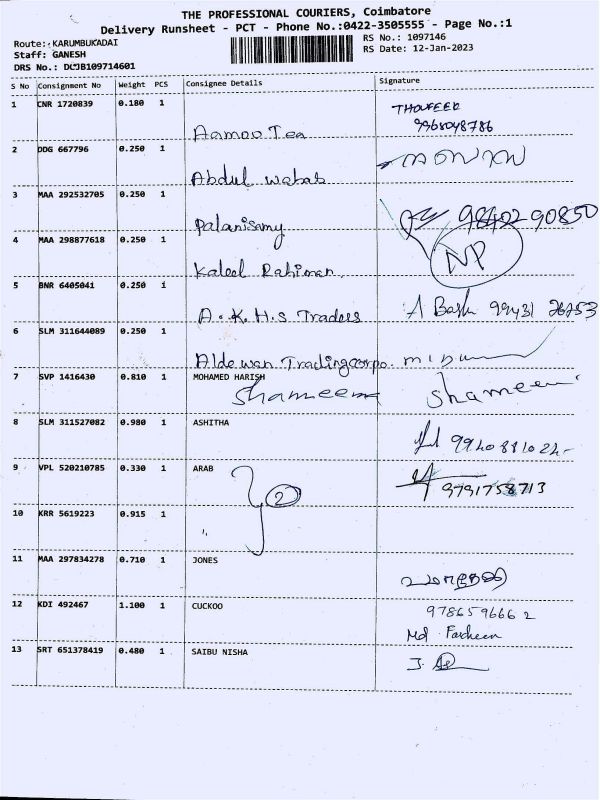 THE PROFESSIONAL COURIERS, Coimbatore
Delivery Runsheet - PCT - Phone No.:0422-3505555 - Page No.:1
Route: KARUMBUKADAI
RS No.: 1097146
Staff: GANESH
RS Date: 12-Jan-2023
DRS No.: DCJB109714601
S No Consignment No Weight PCS Consignee Details Signature
1 CNR 1720839 0.180 1 Aamoo Tea THOUFEEK
9968048786
2 DDG 667796 0.250 1 Abdul wahab
3 MAA 292532705 0.250 1 Palanisamy 98402 90850
4 MAA 298877618 0.250 1 Kaleel Rahiman NP
5 BNR 6405041 0.250 1 A.K.H.S Traders A Bash 99431 26253
6 SLM 311644089 0.250 1 Aldewan Tradingcorpo.
7 SVP 1416430 0.810 1 MOHAMED HARISH
Shameema Shameem
8 SLM 311527082 0.980 1 ASHITHA
9 VPL 520210785 0.330 1 ARAB 9791758713
2
10 KRR 5619223 0.915 1 "
11 MAA 297834278 0.710 1 JONES
12 KDI 492467 1.100 1 CUCKOO 9786596662
Md. Farheen
13 SRT 651378419 0.480 1 SAIBU NISHA